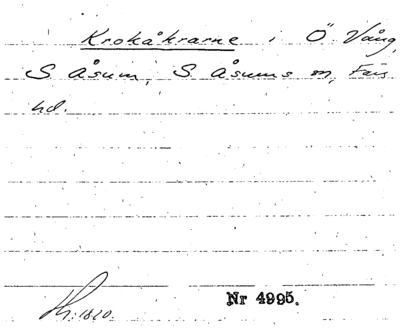 Krokåkrarne i Ö Vång,
S Åsum, S. Åsums sn, Färs
hd.
Nr 4995.